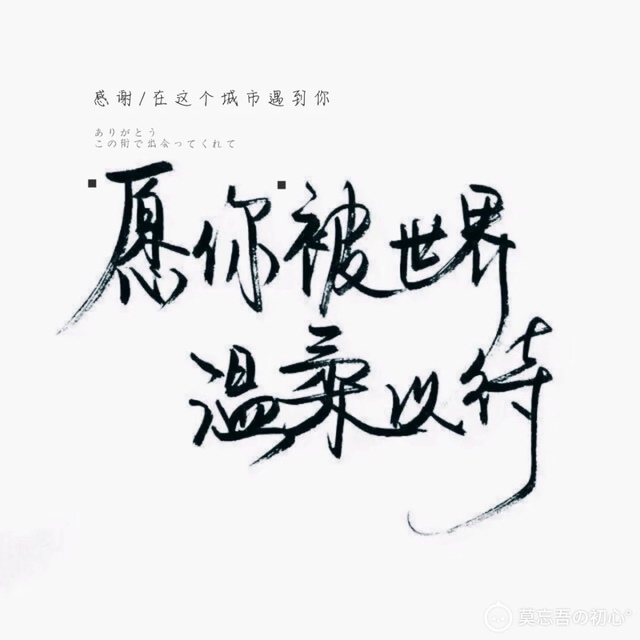 感谢/在这个城市遇到你
ありがとう
この街で出会ってくれて
愿你被世界
温柔以待
莫忘吾の初心°